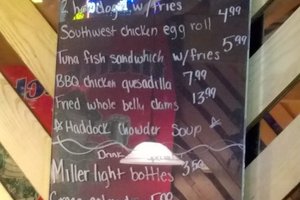 2 hot dogs w/fries 4.99
Southwest chicken egg roll
Tuna fish sandwhich w/fries 5.99
BBQ chicken quesadilla 7.99
Fried whole belly clams 13.99
☆Haddock Chowder Soup☆
Drink Specials
Miller light bottles 3.50